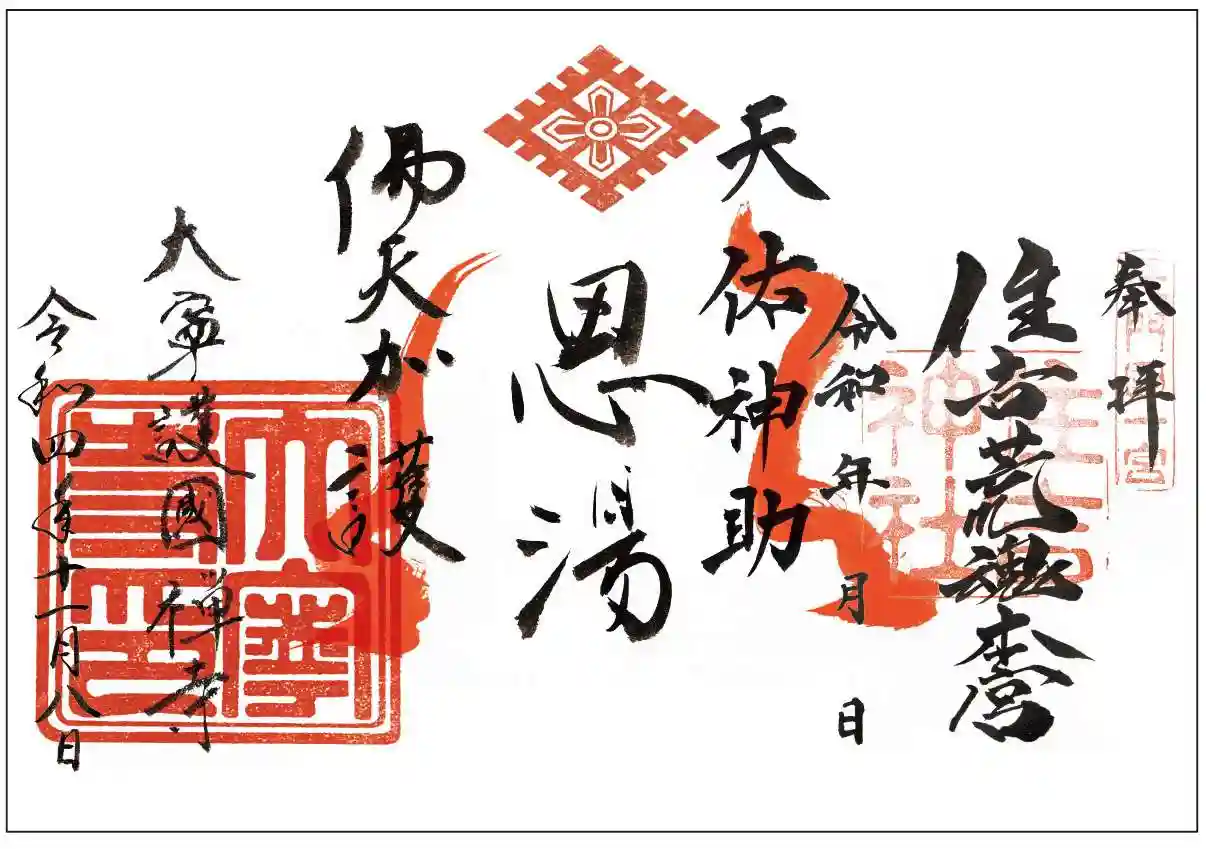 奉拝
住吉荒魂本宮
令和 年 月 日
天佑神助
恩湯
佛天加護
大寧護國禅寺
令和四年十一月八日